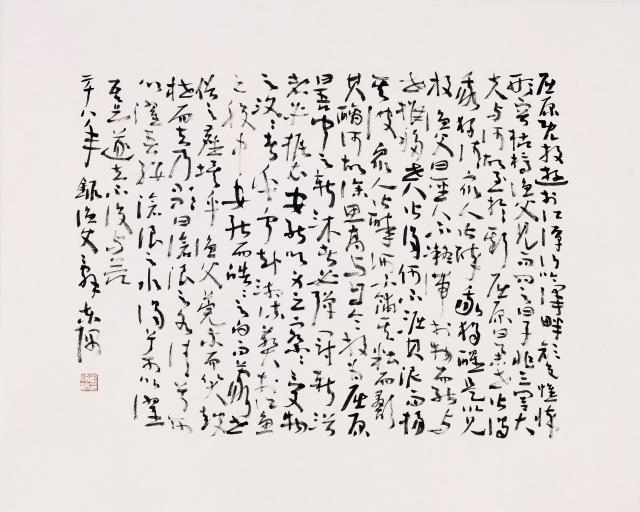 屈原既放遊於江潭行吟澤畔顏色憔悴
形容枯槁漁父見而問之曰子非三閭大
夫與何故至於斯屈原曰舉世皆濁
我獨清眾人皆醉我獨醒是以見
放漁父曰聖人不凝滯於物而能與
世推移世人皆濁何不淈其泥而揚
其波眾人皆醉何不餔其糟而歠
其醨何故深思高舉自令放為屈原
曰吾聞之新沐者必彈冠新浴
者必振衣安能以身之察察受物
之汶汶者乎寧赴湘流葬於江魚
之腹中安能以皓皓之白而蒙世
俗之塵埃乎漁父莞爾而笑鼓
枻而去乃歌曰滄浪之水清兮可
以濯吾纓滄浪之水濁兮可以濯
吾足遂去不復與言
二十八年 錄漁父辭